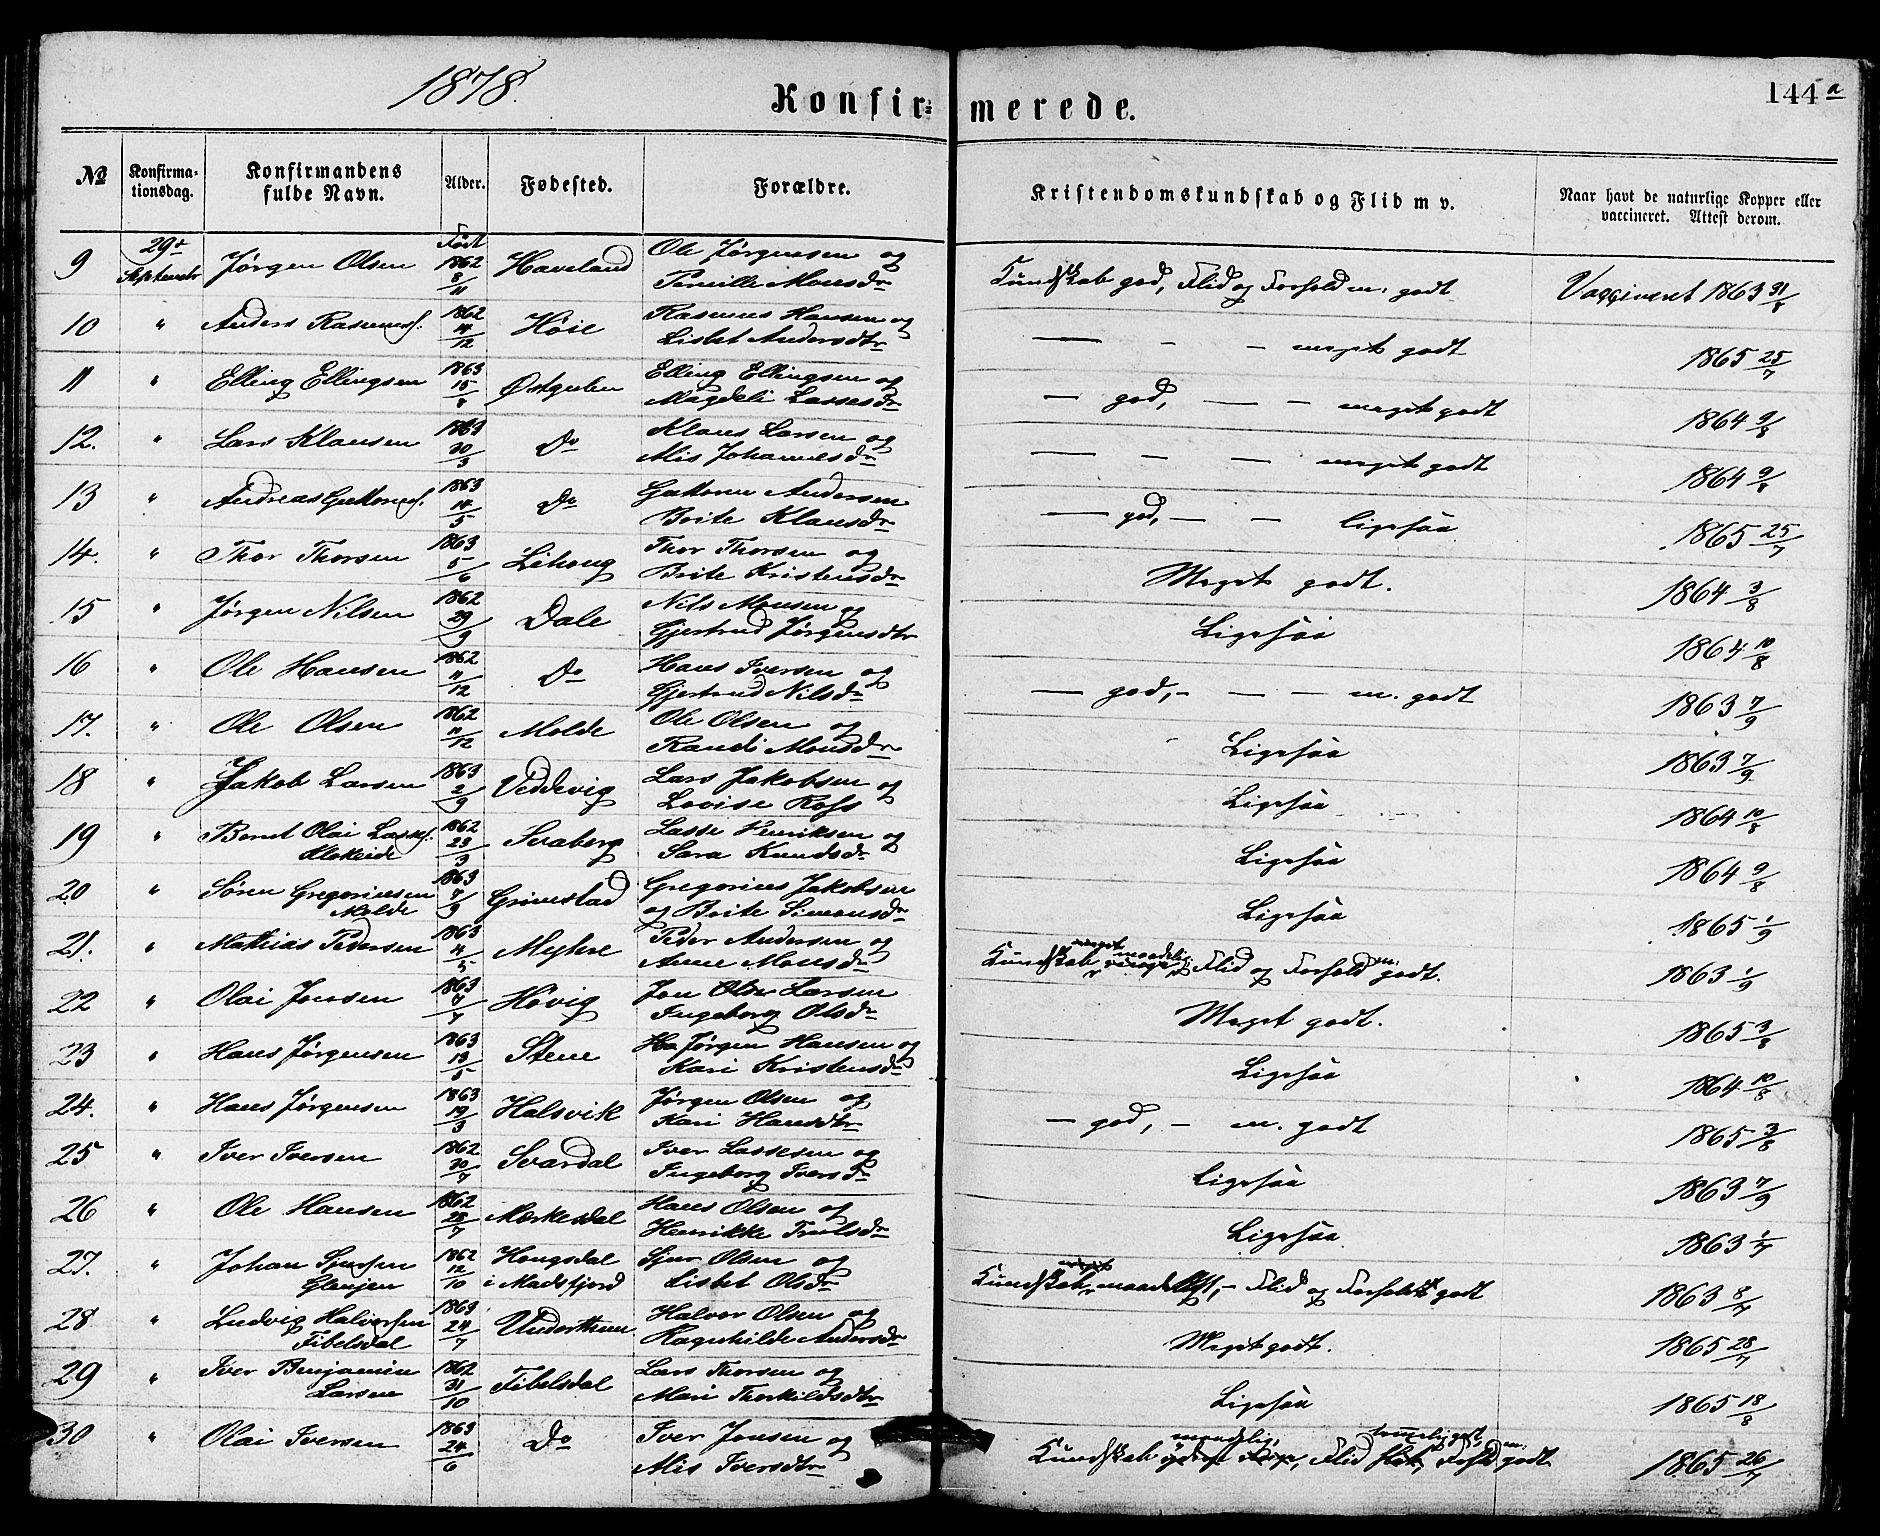 1878.
Konfirmerede.
144 a
No
Konfirmationsdag.
Konfirmandens fulde Navn.
Alder.
Fødested.
Forældre.
Kristendomskundskab og Flid m v.
Naar havt de naturlige Kopper eller vaccineret. Attest derom.
9 29de September Jørgen Olsen Født 1862 8/11 Haveland Ole Jørgensen og Pernille Monsdr Kundskab god, Flid og Forhold m. godt Vaccineret 1863 31/8
10 " Anders Rasmuss. 1862 14/12 Høie Rasmus Hansen og Lisbet Andersdtr — - - meget godt 1865 25/7
11 " Elling Ellingsen 1863 15/8 Østgulen Elling Ellingsen og Magdeli Lassesdr — god, — - meget godt 1864 9/8
12. " Lars Klausen 1863 30/3 Do Klaus Larsen og Alis Johannesdr — - - meget godt 1864 9/8
13 " Andreas Guttorms. 1863 14/5 Do Guttorm Andersen Brite Klausdr — god, — - ligesaa 1865 25/7
14. " Thor Thorsen 1863 5/6 Lihoug Thor Thorsen og Brite Kristensdr Meget godt. 1864 3/8
15 " Jørgen Nilsen 1862 29/9 Dale Nils Monsen og Gjertrud Jørgensdtr Ligesaa 1864 10/8
16 " Ole Hansen 1862 11/12 Do Hans Iversen og Gjertrud Nilsdr — god, - — - m. godt 1863 7/9
17. " Ole Olsen 1862 11/12 Molde Ole Olsen og Randi Monsdr Ligesaa 1863 7/9
18 " Jakob Larsen 1863 2/9 Veddevig Lars Jakobsen og Lovise Ross Ligesaa 1864 10/8
19 " Bernt Olai Lasses. Klokeide 1862 23/3 Seraberg Lasse Henriksen og Sara Knudsdr Ligesaa 1864 9/8
20 " Søren Gregoriussen Molde 1863 7/9 Grimestad Gregorius Jakobsen og Brite Simonsdr Ligesaa 1865 1/9
21. " Mathias Pedersen 1863 4/5 Myhre Peder Andersen og Anne Monsdr Kundskab meget maadelig, Flid og Forhold m. godt. 1863 1/9
22 " Olai Jonsen 1863 7/7 Høvig Jon Larsen Ingeborg Olsdr Meget godt. 1865 3/8
23 " Hans Jørgensen 1863 13/5 Stene Jørgen Hansen og Kari Kristensdr Ligesaa 1864 10/8
24. " Hans Jørgensen 1863 19/3 Halsvik Jørgen Olsen og Kari Hansdtr — god, - m. godt 1865 3/8
25 " Iver Iversen 1862 30/7 Svardal Iver Lassesen og Ingeborg Iversdr Ligesaa 1863 7/9
26 " Ole Hansen 1862 28/7 Merkesdal Hans Olsen og Henrikke Trulsdr Ligesaa 1863 1/7
27. " Johan Sjursen Glenjen 1862 12/10 Hougsdal i Madsfjord Sjur Olsen og Lisbet Olsdr Kundskab maadelig, - Flid og Forhold godt 1863 8/7
28 " Ludvig Halvorsen Fibelsdal 1863 24/7 Underthun Halvor Olsen og Ragnhilde Andersdr Meget godt. 1865 28/7
29 " Iver Benjamin Larsen 1862 31/10 Fibelsdal Lars Thorsen og Mari Thorkildsdtr Ligesaa 1865 18/8
30 " Olai Iversen 1863 24/6 Do Iver Jonsen og Alis Iversdtr Kundskab maadelig, Flid temmelig god, Forhold m. godt. 1865 26/7